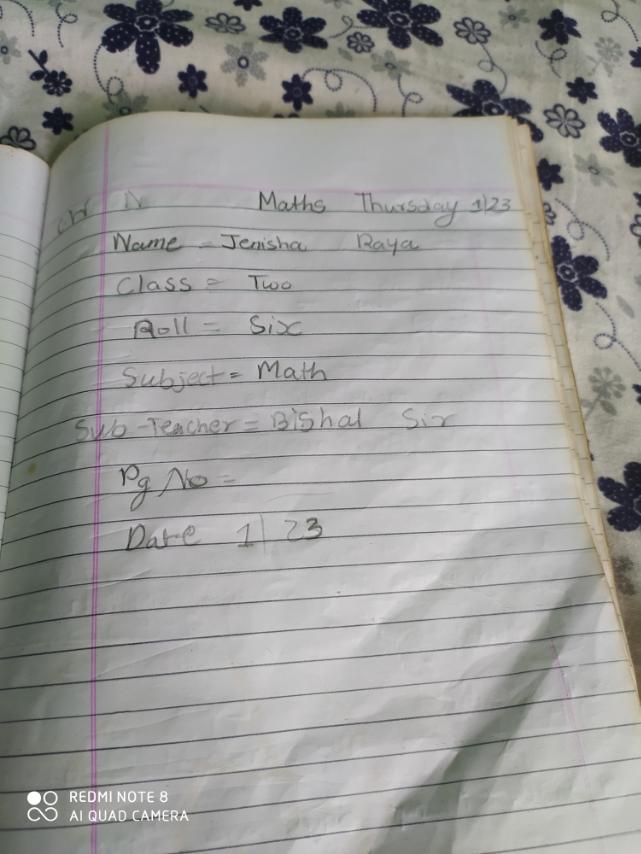 Maths Thursday 1|23
Name = Jenisha Raya
Class = Two
Roll = Six
Subject = Math
Sub-Teacher = Bishal Sir
Pg No =
Date 1| 23
REDMI NOTE 8
AI QUAD CAMERA